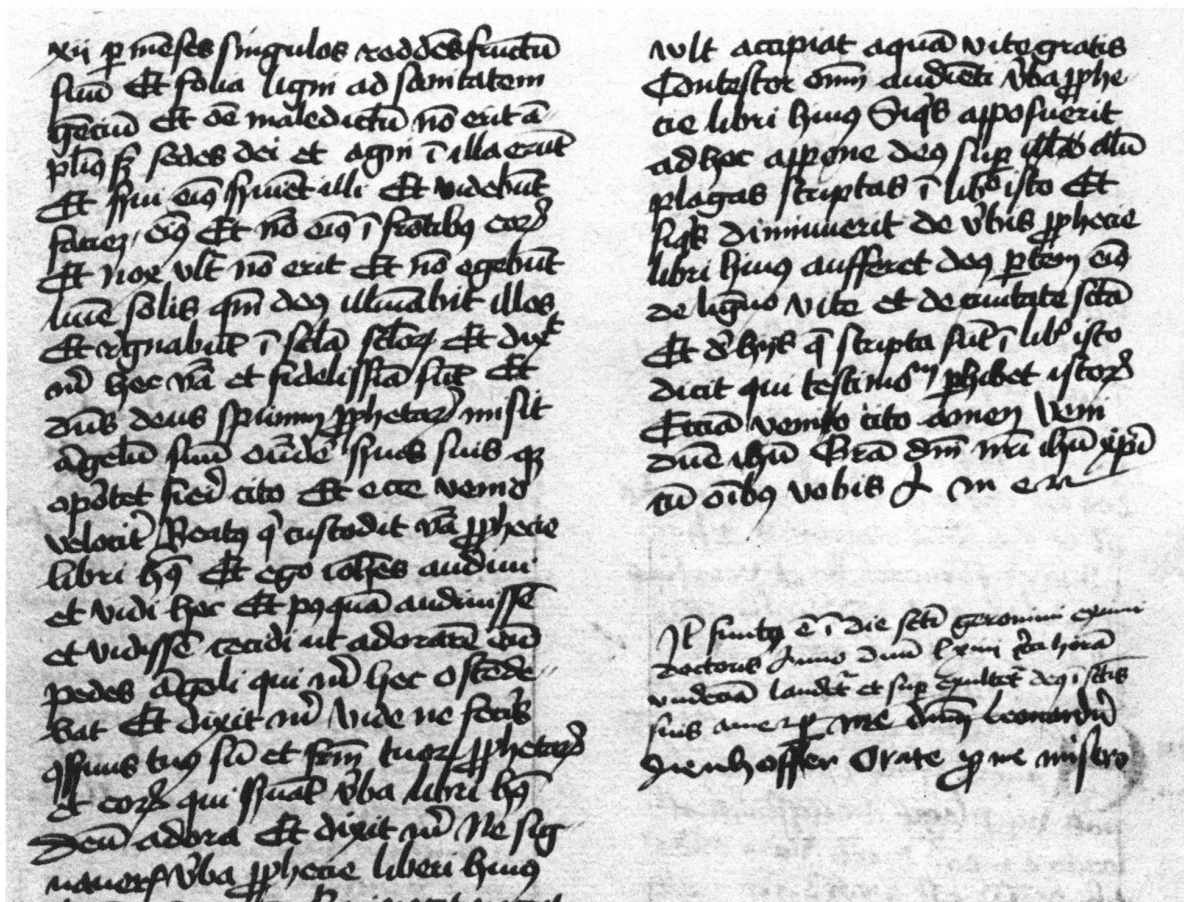 xij p̲ mēses singulos reddēs fructū
suū Et folia ligni ad sanitatem
gēciū Et oē maledictū nō erit ā-
pliꝰ sꝫ sedes dei et agni ī illa erūt
Et s̄ui eiꝰ s̄uiēt illi Et videbūt
faciē eiꝰ Et nō eiꝰ ī frōtibꝰ eoꝝ
Et nox vlt̄ nō erit Et nō egebūt
lumē solis qm̄ deꝰ illūabit illos
Et regnabūt ī scl̄a scl̄oꝝ Et dixt
m̄ hec v̄a et fidelissīa sūt Et
dn̄s deus spirituum ꝓphetaꝝ misit
āgelū suū ondē s̄uos suis q̄
oportet fieri cito Et ecce venio
velocit̄ Beatꝰ q̇ custodit v̄a ꝓphecie
libri hꝰ Et ego ioh̄es audiui
et vidi hec Et pꝰquā audiuissē
et vidissē cecidi ut adorarē
pedes āgeli qui m̄ hec ostēde-
bat Et dixit m̄ Vide ne fec̄is
ꝯs̄uus tuꝰ sū et fr̄m tuoꝝ ꝓphetaꝝ
et eoꝝ qui s̄uāt v̄ba libri hꝰ
Deū adora Et dixit m̄ Ne sig
naueris v̄ba ꝓphecie liberi huiꝰ
vlt accipiat aquā vite gratis
Contestor omī audiēti v̄ba ꝓphe-
cie libri huiꝰ Siq̇s apposuerit
ad hec appone deꝰ suꝑ illū
plagas scriptas ī libro isto Et
siq̇s diminuerit de v̄bis ꝓphecie
libri huiꝰ aufferet deꝰ ꝑtem eiꝰ
de ligno vite et de ciuitate sctā
Et de hijs q̄ scripta sūt ī libo isto
dicit qui testimoᵐ ꝑhibet istoꝝ
Etciā venio cito amen Veni
dn̄e ih̄u Grā dn̄i nr̄i ih̄u xp̄i
cū oībꝰ vobis A m e n
It finitꝰ ē ī die sctī geronimi eximi
doctoris Anno dn̄i lxiiii horā
laudet̄ et suꝑ exultet̄ deꝰ ī sctīs
suis amen ꝑ me leonardū
dienhoffer Orate ꝓ me misero